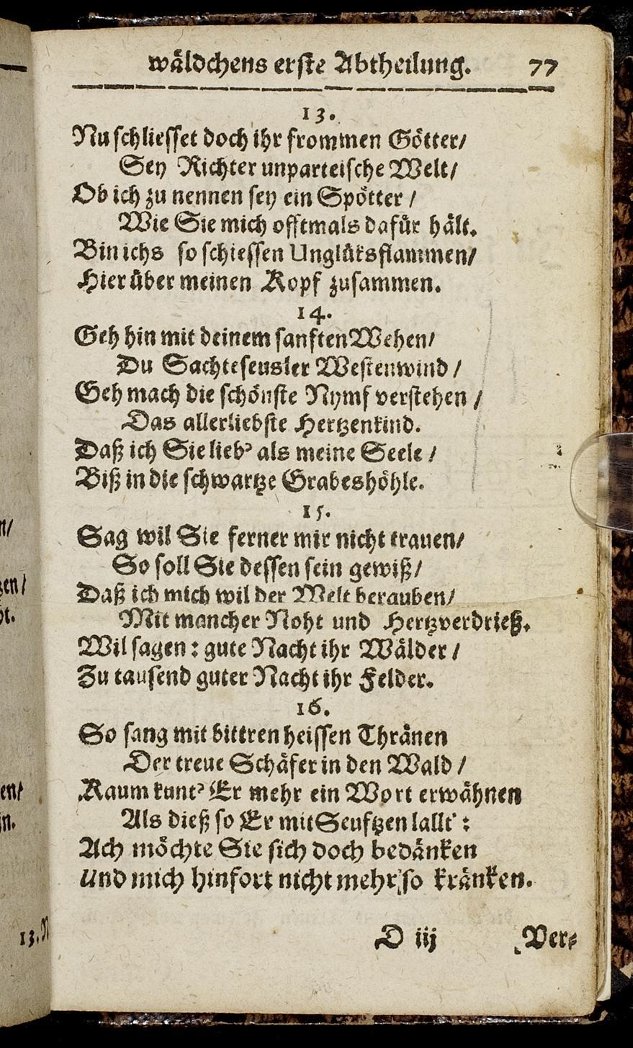 wäldchens erste Abtheilung. 77
13.
Nu schliesset doch ihr frommen Götter/
Sey Richter unparteische Welt/
Ob ich zu nennen sey ein Spötter /
Wie Sie mich offtmals dafür hält.
Bin ichs so schiessen Unglüksflammen/
Hier über meinen Kopf zusammen.
14.
Geh hin mit deinem sanften Wehen/
Du Sachteseusler Westenwind /
Geh mach die schönste Nymf verstehen /
Das allerliebste Hertzenkind.
Daß ich Sie lieb' als meine Seele /
Biß in die schwartze Grabeshöhle.
15.
Sag wil Sie ferner mir nicht trauen/
So soll Sie dessen sein gewiß/
Daß ich mich wil der Welt berauben/
Mit mancher Noht und Hertzverdrieß.
Wil sagen : gute Nacht ihr Wälder /
Zu tausend guter Nacht ihr Felder.
16.
So sang mit bittren heissen Thränen
Der treue Schäfer in den Wald /
Kaum kunt' Er mehr ein Wort erwähnen
Als dieß so Er mit Seuftzen lallt' :
Ach möchte Sie sich doch bedänken
Und mich hinfort nicht mehr so kränken.
D iij Ver-
n/
zen/
bt.
en/
in.
13. N